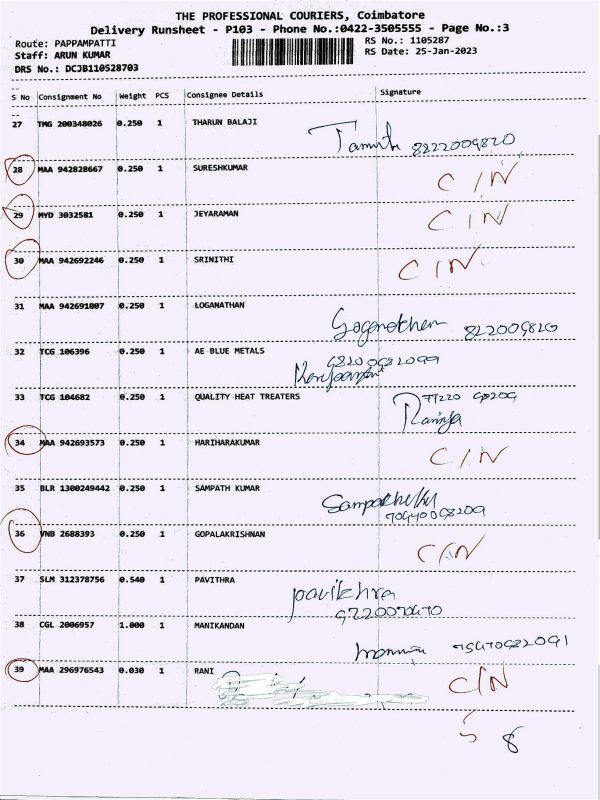 THE PROFESSIONAL COURIERS, Coimbatore
Delivery Runsheet - P103 - Phone No.:0422-3505555 - Page No.:3
Route: PAPPAMPATTI RS No.: 1105287
Staff: ARUN KUMAR RS Date: 25-Jan-2023
DRS No.: DCJB110528703
S No Consignment No Weight PCS Consignee Details Signature
27 TMG 200348026 0.250 1 THARUN BALAJI
8822009820
28 MAA 942828667 0.250 1 SURESHKUMAR C/N
29 MYD 3032581 0.250 1 JEYARAMAN C/N
30 MAA 942692246 0.250 1 SRINITHI C/N
31 MAA 942691007 0.250 1 LOGANATHAN
32 TCG 106396 0.250 1 AE BLUE METALS
33 TCG 104682 0.250 1 QUALITY HEAT TREATERS
34 MAA 942693573 0.250 1 HARIHARAKUMAR C/N
35 BLR 1300249442 0.250 1 SAMPATH KUMAR
36 VNB 2688393 0.250 1 GOPALAKRISHNAN C/N
37 SLM 312378756 0.540 1 PAVITHRA
pavikhra
38 CGL 2006957 1.000 1 MANIKANDAN
39 MAA 296976543 0.030 1 RANI C/N
5 8